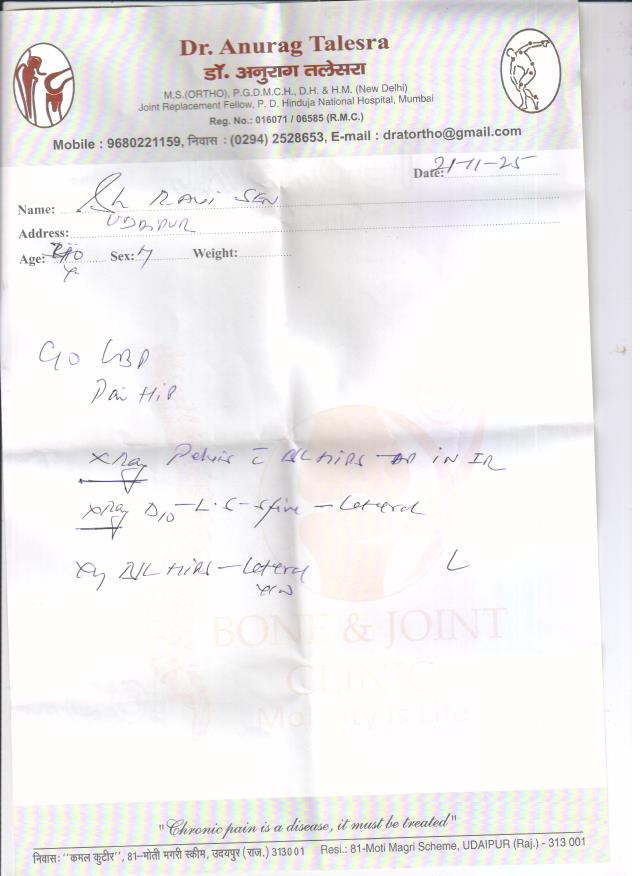 Dr. Anurag Talesra
डॉ. अनुराग तलेसरा
M.S.(ORTHO), P.G.D.M.C.H., D.H. & H.M. (New Delhi)
Joint Replacement Fellow, P. D. Hinduja National Hospital, Mumbai
Reg. No.: 016071 / 06585 (R.M.C.)
Mobile : 9680221159, निवास : (0294) 2528653, E-mail : dratortho@gmail.com
Date: 21-11-25
Name: Sh RAVI SEN
Address: UDAIPUR
Age: Sex: M Weight:
C/O LBP
Pain Hip
X Ray Pelvis c B/L HIPS - AP in IR
X Ray D10-L.S-Spine - Lateral
Xry B/L HIPS - Lateral
view
L
BONE & JOINT
CLINIC
Mobility is Life
"Chronic pain is a disease, it must be treated"
निवास: "कमल कुटीर", 81-मोती मगरी स्कीम, उदयपुर (राज.) 313001 Resi.: 81-Moti Magri Scheme, UDAIPUR (Raj.) - 313 001